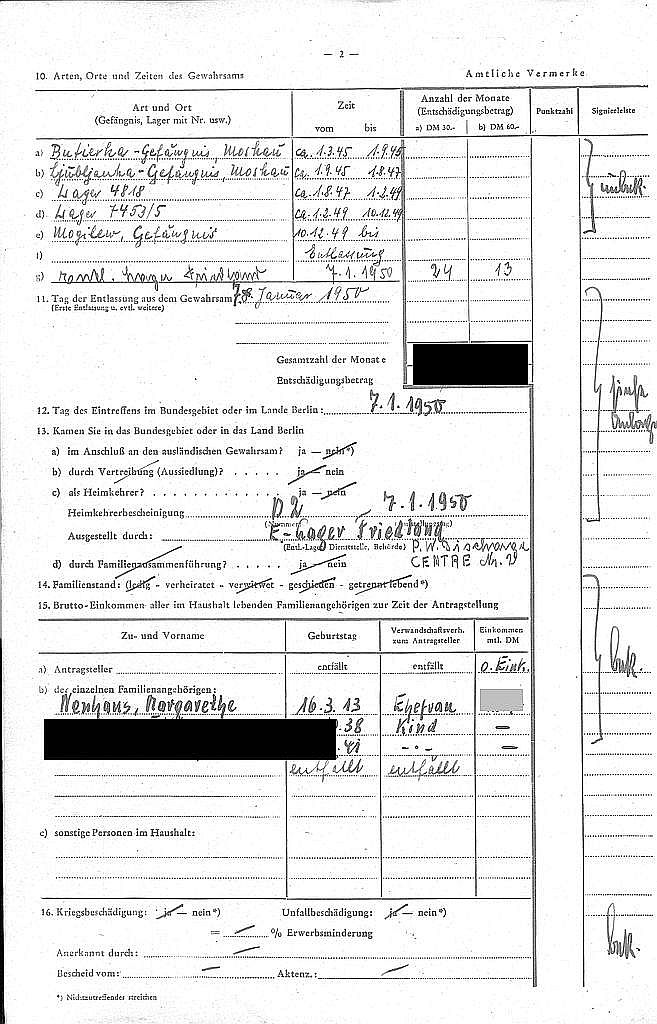 — 2 —
10. Arten, Orte und Zeiten des Gewahrsams
Amtliche Vermerke
Art und Ort
(Gefängnis, Lager mit Nr. usw.)
Zeit
vom bis
Anzahl der Monate
(Entschädigungsbetrag)
a) DM 30.- b) DM 60.-
Punktzahl
Signierleiste
a) Butierka-Gefängnis, Moskau ca. 1.3.45 1.9.45
b) Ljubljanka-Gefängnis, Moskau ca. 1.9.45 1.8.47
c) Lager 4818 ca. 1.8.47 1.2.49
d) Lager 7453/5 ca. 1.2.49 10.12.49
e) Mogilew, Gefängnis 10.12.49 bis
f) Entlassung
g) Lager Friedland 7.1.1950 24 13
11. Tag der Entlassung aus dem Gewahrsam 7. Januar 1950
(Erste Entlassung u. evtl. weitere)
Gesamtzahl der Monate
Entschädigungsbetrag
12. Tag des Eintreffens im Bundesgebiet oder im Lande Berlin: 7.1.1950
13. Kamen Sie in das Bundesgebiet oder in das Land Berlin
a) im Anschluß an den ausländischen Gewahrsam? ja — nein*)
b) durch Vertreibung (Aussiedlung)? . . . . . ja — nein
c) als Heimkehrer? . . . . . . . . . . . . ja — nein
Heimkehrerbescheinigung D2, 7.1.1950
(Nummer)
Ausgestellt durch: E-Lager Friedland
(Entl.-Lager, Dienststelle, Behörde) P.W. Discharge
CENTRE Nr.
d) durch Familienzusammenführung? . . . . . ja — nein
14. Familienstand: (ledig - verheiratet - verwitwet - geschieden - getrennt lebend*)
15. Brutto-Einkommen aller im Haushalt lebenden Familienangehörigen zur Zeit der Antragstellung
Zu- und Vorname
Geburtstag
Verwandschaftsverh.
zum Antragsteller
Einkommen
mtl. DM
a) Antragsteller entfällt entfällt o. Eink.
b) der einzelnen Familienangehörigen:
Nenhaus, Margarethe 16.3.13 Ehefrau
.38 Kind —
.41 -·- —
entfällt entfällt
c) sonstige Personen im Haushalt:
16. Kriegsbeschädigung: ja — nein*) Unfallbeschädigung: ja — nein*)
= — % Erwerbsminderung
Anerkannt durch: —
Bescheid vom: — Aktenz.: —
*) Nichtzutreffendes streichen